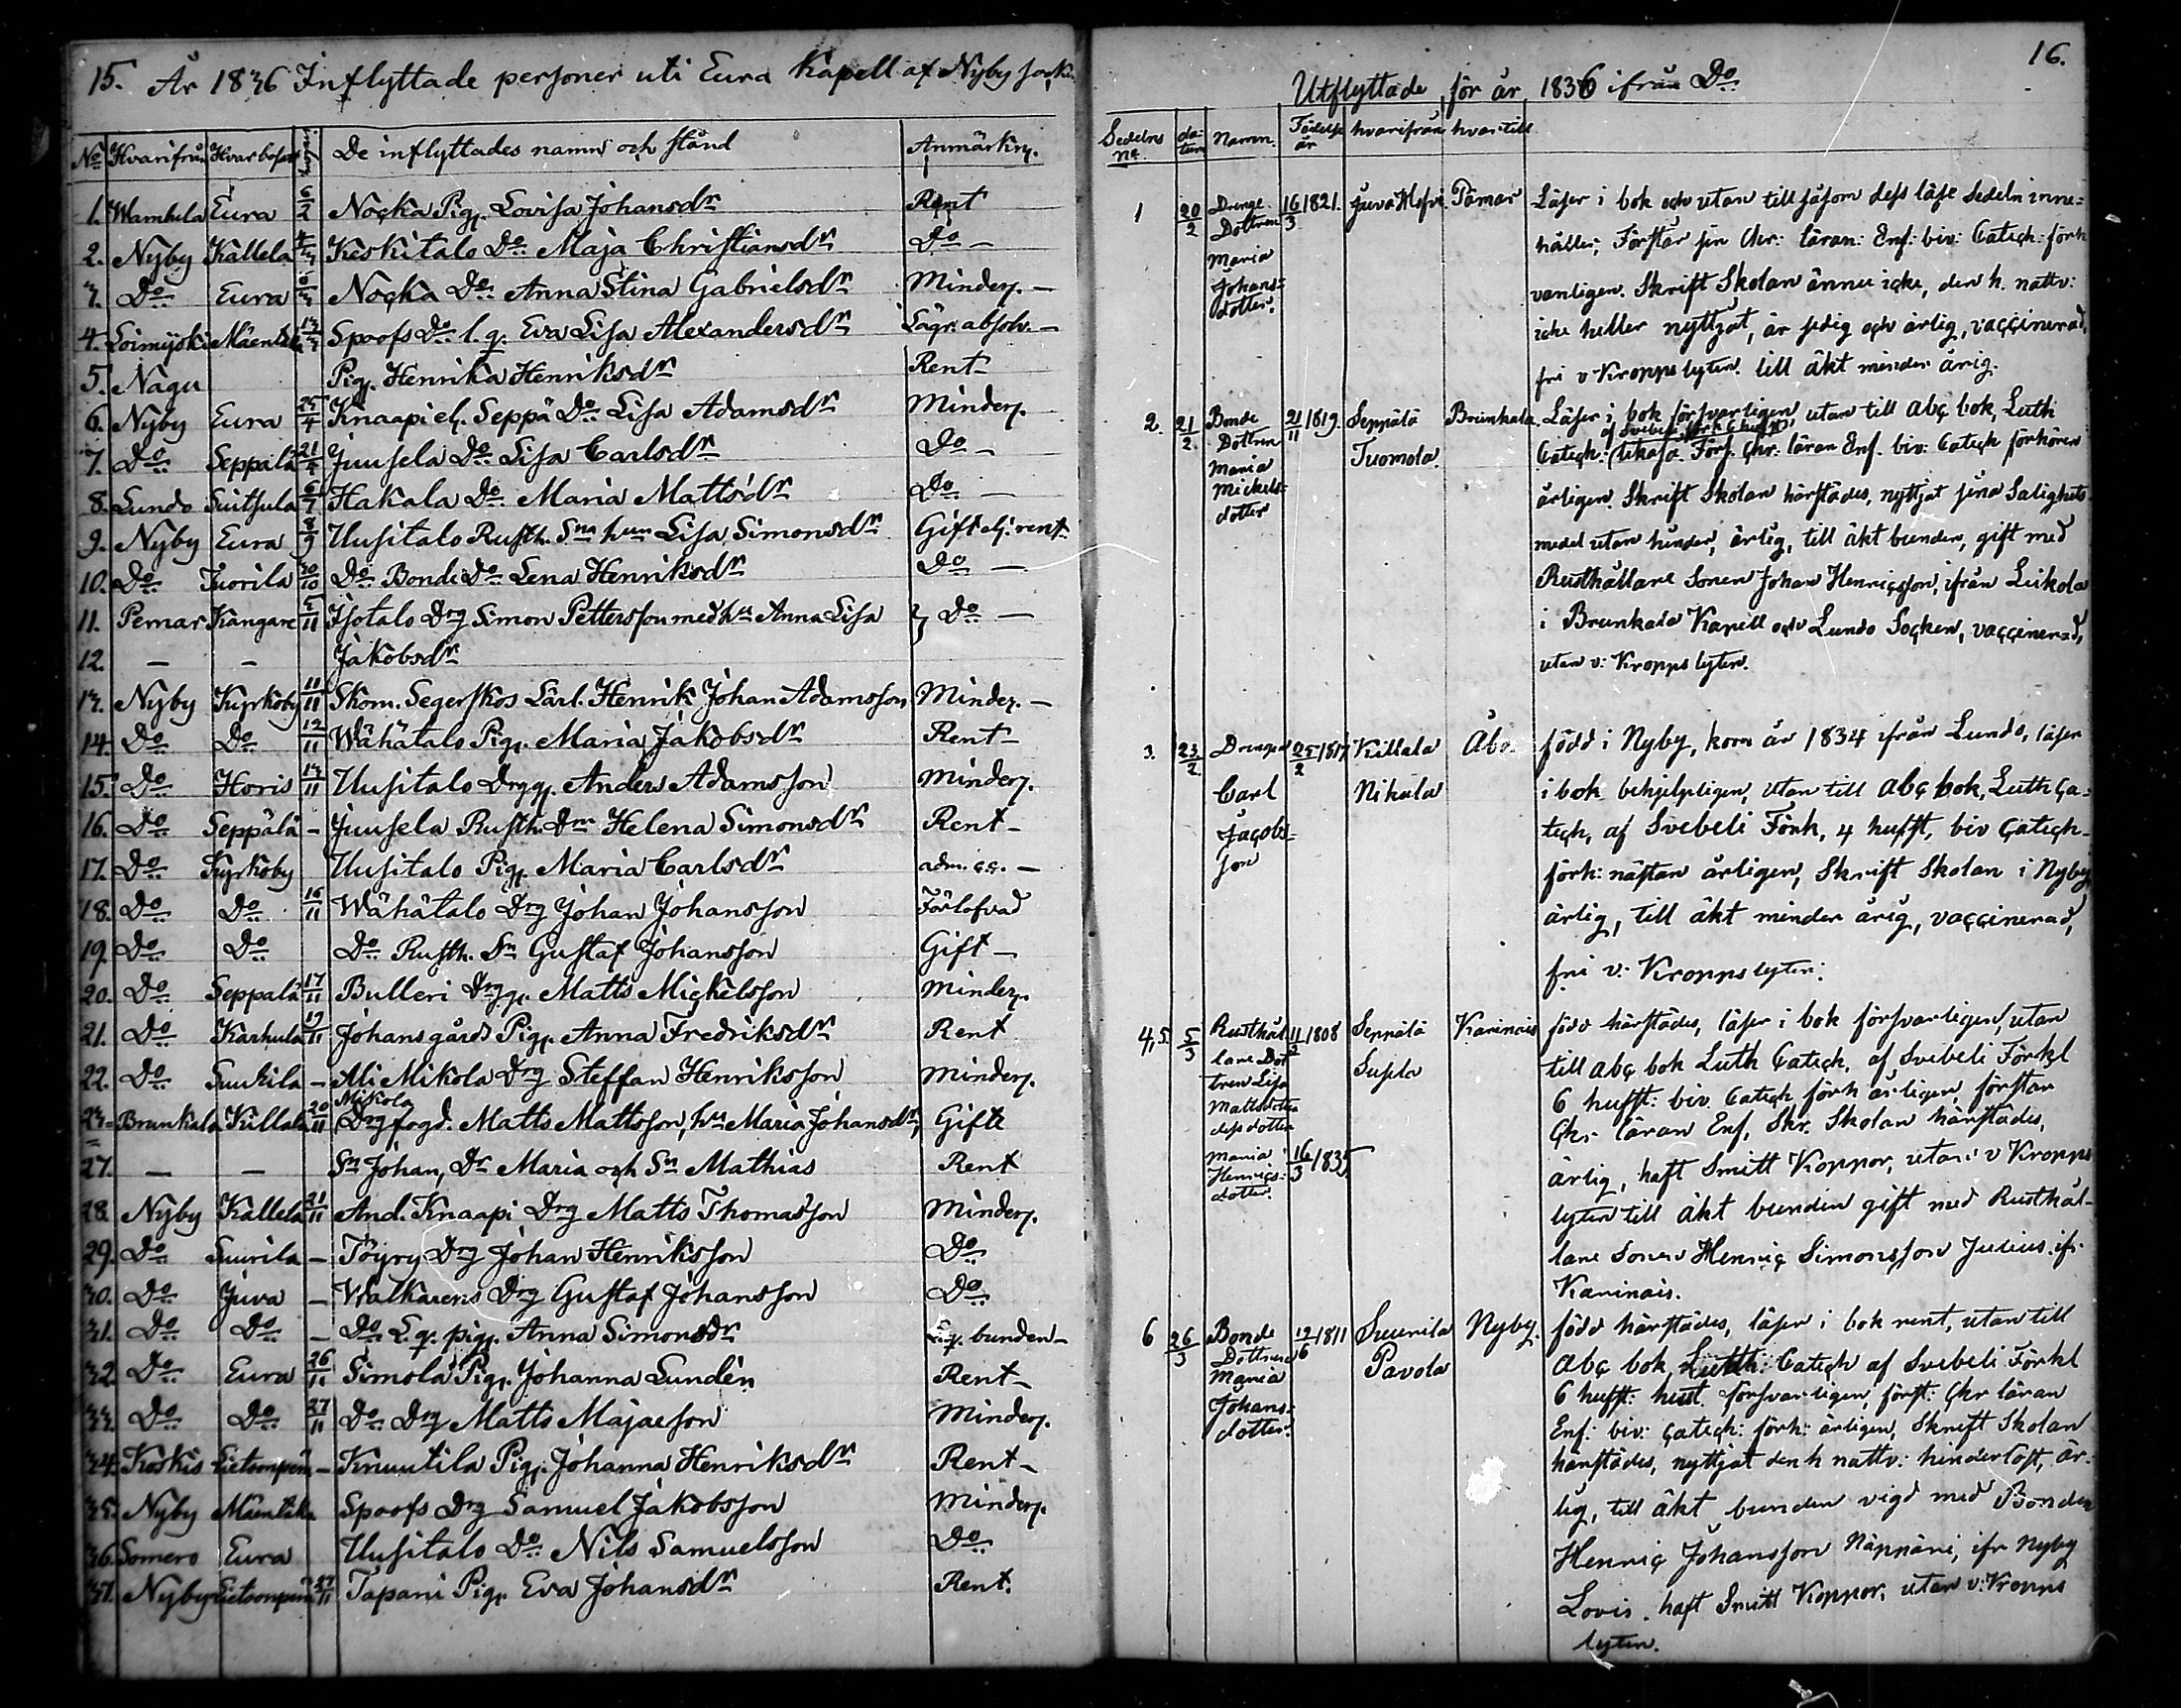 15. År 1836 Inflyttade personer uti Eura Kapell af Nyby sock.
No Hvarifrån Hvar bosatt De inflyttades namn och stånd Anmärkn.
1. Wamhula Eura 6/2 Nocka Pig. Lovisa Johansdr Rent
2. Nyby Källela Keskitalo Do Maja Christiansdr Do —
3. Do Eura 6/3 Nocka Do Anna Stina Gabrielsdr Minderj. —
4. Loimijoki Mäentaka 13/3 Spoofs Do l. q. Eva Lisa Alexandersdr Lägr. absolv. —
5. Nagu Pig. Henrika Henriksdr Rent
6. Nyby Eura 25/4 Knaapi el. Seppä Do Lisa Adamsdr Minderj.
7. Do Seppälä Juusela Do Lisa Carlsdr Do —
8. Lundo Suitsula 6/7 Hakala Do Maria Mattsdr Do —
9. Nyby Eura 8/9 Uusitalo Rusth. Sns hun Lisa Simonsdr Gift ej. rent
10. Do Juorila 30/10 Do Bonde Do Lena Henriksdr Do —
11. Pemar Kangare 5/11 Isotalo Drg Simon Pettersson med hu Anna Lisa } Do —
12. — — Jakobsdr
13. Nyby Kyrkoby 11/11 Skom. Segerskos Lärl. Henrik Johan Adamsson Minderj. —
14. Do Do 12/11 Wähätalo Pig. Maria Jakobsdr Rent —
15. Do Horis 13/11 Uusitalo Drgg. Anders Adamsson Minderj.
16. Do Seppälä — Juusela Rusth. Dm Helena Simonsdr Rent —
17. Do Kyrkoby Uusitalo Pig. Maria Carlsdr adm. —
18. Do Do 16/11 Wähätalo Drg Johan Johansson Förlofvad
19. Do Do Do Rusth. Sn Gustaf Johansson Gift —
20. Do Seppälä 17/11 Bulleri Drgg. Matts Mickelsson Minderj.
21. Do Karhula 19/11 Johansgårds Pig. Anna Fredriksdr Rent
22. Do Suukila — Ali Mikola Drg Steffan Henriksson Minderj.
Mikola
23 = Brunkala Killala 20/11 Drg fogd. Matts Mattsson, hu Maria Johansdr, Gifte
27. — — Sn Johan, Dr Maria och Sn Mathias Rent
28. Nyby Kallela 21/11 And. Knaapi Drg Matts Thomasson Minderj.
29. Do Suurila — Töyry Drg Johan Henriksson Do
30. Do Juva — Walkarens Drg Gustaf Johansson Do
31. Do Do — Do L. q. pig. Anna Simonsdr L. q. bunden —
32. Do Eura 26/11 Simola Pig. Johanna Lundén Rent —
33. Do Do 27/11 Do Drg Matts Majaeson Minderj.
34. Koskis Lietsonpern — Knuutila Pig. Johanna Henriksdr Rent —
35. Nyby Mäentaka Spoofs Drg Samuel Jakobsson Minderj.
36. Somero Eura Uusitalo Do Nils Samuelsson Do
37. Nyby Lietsonpern 27/11 Tapani Pig. Eva Johansdr Rent.
16.
Utflyttade för år 1836 ifrån Do
Sedelns no datum Namn. Födelse år hvarifrån hvartill
1 20/2 Drenge Dottren Maria Johansdotter. 16/3 1821. Juva Pämar
Läser i bok och utan till såsom dess läse Sedeln inne=
håller, Förstår sin Chr: läran: Enf: biv: Catech: förh
vanligen. Skrift Skolan ännu icke, den h. nattv:
icke heller nyttjat, är sedig och ärlig, vaccinerad,
fri v Kropps lyten. till äkt minder årig.
2. 21/2 Bonde Dottren Maria Mickelsdotter 21/11 1819. Seppälä Tuomola. Brunkala
Läser i bok försvarligen utan till abc bok, Luth
af Svebeli förk 6 hufft
Catech: likaså. Förs. Chr: läran Enf. biv: Catech förhören
årligen. Skrift Skolan härstädes, nyttjat sina Salighets-
medel utan hinder, ärlig, till äkt bunden, gift med
Rusthållare Sonen Johan Henricsson, ifrån Leikola
i Brunkala Kapell och Lundo Socken, vaccinerad,
utan v: Kropps lyten.
3. 23/2 Drengen Carl Jacobsson 25/2 1817 Killala Nikula Åbo.
född i Nyby, kom år 1834 ifrån Lundo, läser
i bok behjelpligen, utan till abc bok, Luth Ca=
tech, af Svebeli Förk, 4 hufft, biv Catech-
förh: nästan årligen, Skrift Skolan i Nyby,
ärlig, till äkt minder årig, vaccinerad,
fri v: Kropps lyten.
4,5. 5/3 Rusthållare Dottren Lisa Mattsdotter dess dotter Maria Henricsdotter. 11/2 1808 16/3 1835 Seppälä Supla Karinais
född härstädes, läser i bok försvarligen, utan
till abc bok Luth Catech, af Svebeli Förkl
6 hufft: biv Catech förh årligen, förstår
Chr läran Enf, Skr. Skolan härstädes,
ärlig, haft Smitt Koppor, utan v Kropps
lyten till äkt bunden gift med Rusthål-
lare Sonen Henric Simonsson Julius ifr.
Karinais.
6 26/3 Bonde Dottren Maria Johansdotter. 12/6 1811 Suurila Pavola Nyby.
född härstädes, läser i bok rent, utan till
Abc bok, Luth: Catech af Svebeli Förkl
6 hufft: hust försvarligen, först: Chr läran
Enf: biv: Catech: förh: årligen, Skrift Skolan
härstädes, nyttjat den h nattv: hinderlöst, är-
lig, till äkt bunden vigd med Bonden
Henric Johansson Näppäri, ifr Nyby
Lovis. haft Smitt Koppor, utan v: Kropps
lyten.